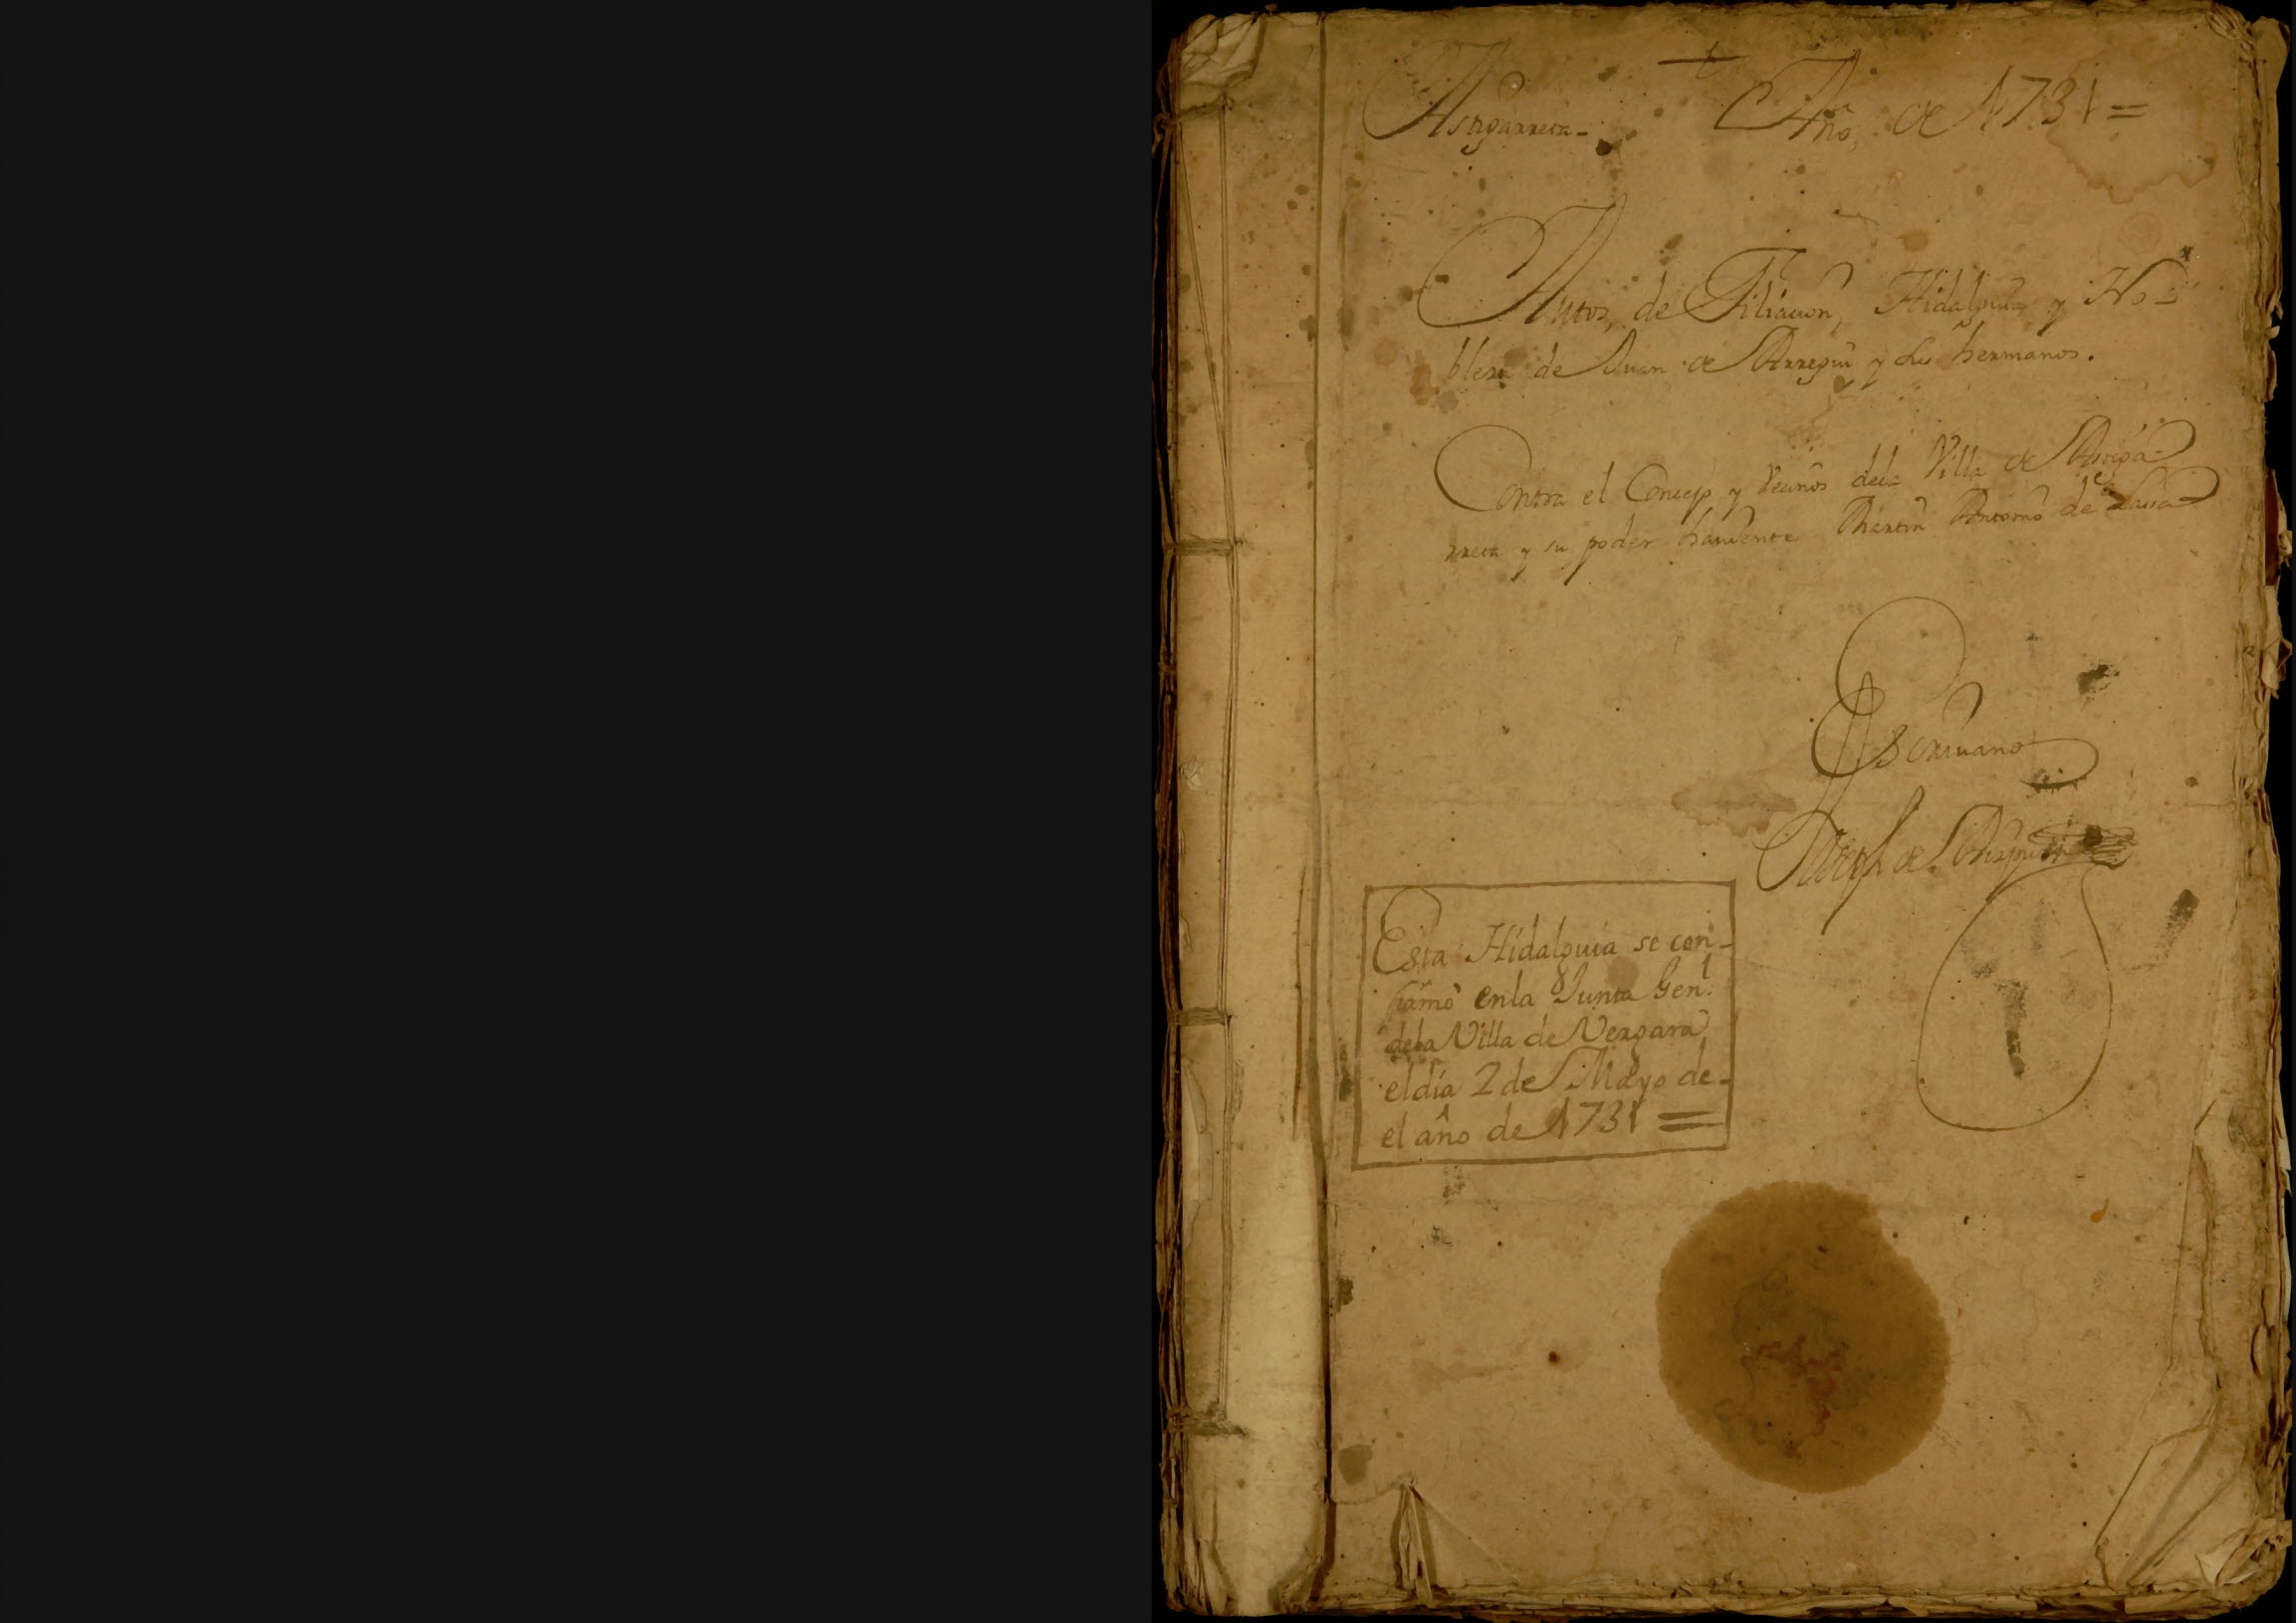 Astigarreta- Año, de 1731=
Autos, de Filiacion, Hidalguia y No-
bleza de Juan de Arregui y sus hermanos.
Contra el Concejo y Vecinos dela Villa de Astiga-
rreta y su poder haviente Martin Antonio de
Escrivano
Joseph de
Esta Hidalguia se con-
firmò enla Junta Gen.l
dela Villa de Vergara
el dia 2 de Mayo de-
el año de 1731=